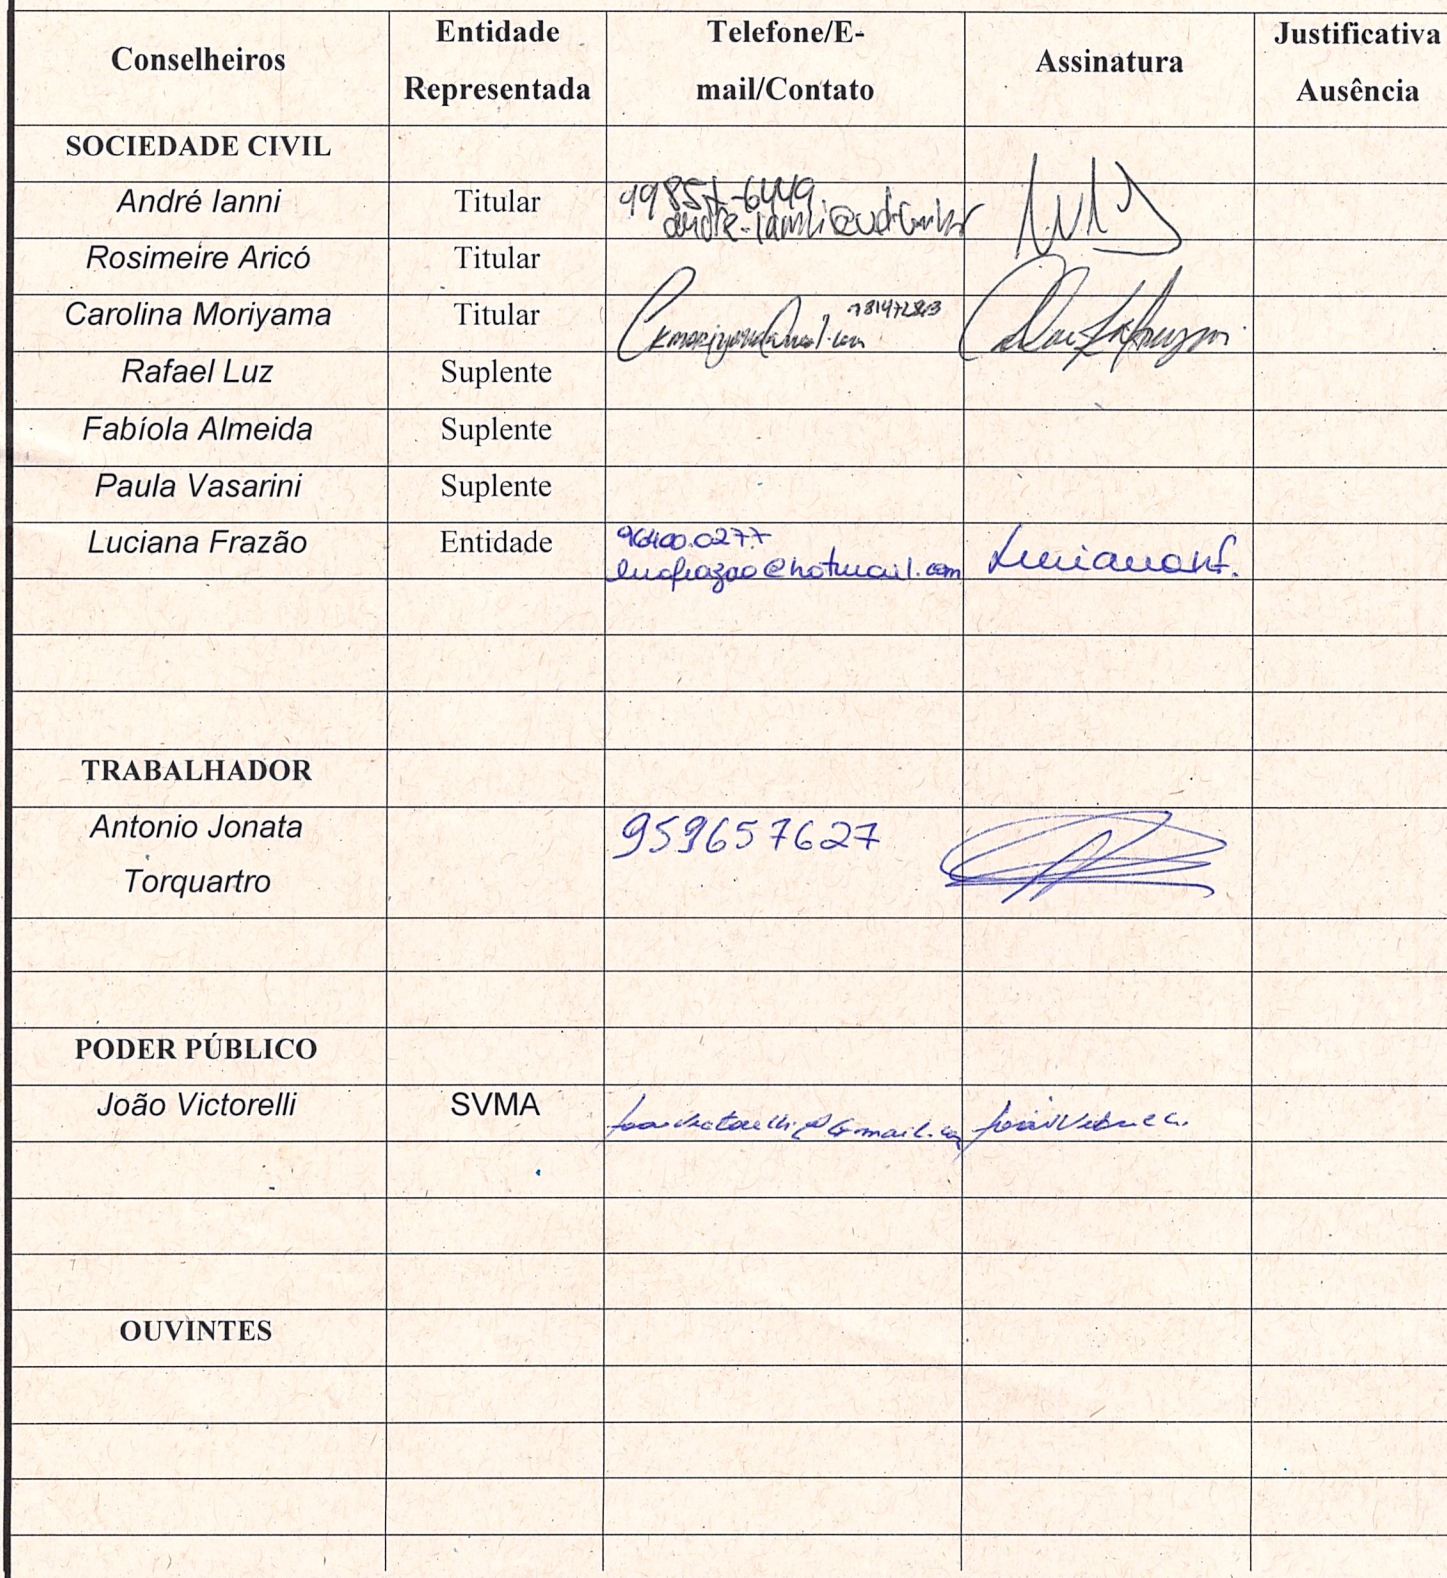 Conselheiros Entidade Representada Telefone/E-mail/Contato Assinatura Justificativa Ausência
SOCIEDADE CIVIL
André Ianni Titular 99857-6449
Rosimeire Aricó Titular
Carolina Moriyama Titular
Rafael Luz Suplente
Fabíola Almeida Suplente
Paula Vasarini Suplente
Luciana Frazão Entidade 96400.0277
lucfrazao@hotmail.com
TRABALHADOR
Antonio Jonata 959657627
Torquartro
PODER PÚBLICO
João Victorelli SVMA
OUVINTES